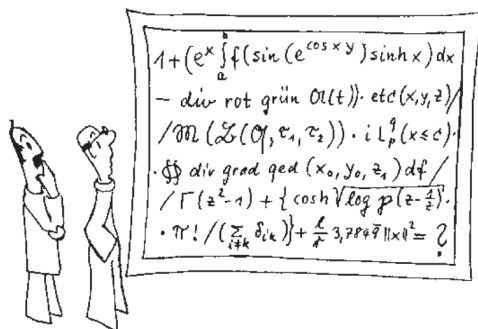 1+(e^x ∫_a^b f(sin(e^{cos x y}) sinh x) dx
− div rot grün 𝔄(t))· etc(x,y,z)/
/𝔐(𝔏(𝔄, τ₁, τ₂)· i L_p^q (x≤c)·
·∯ div grad qed (x₀, y₀, z₁) df/
/Γ(z²−1) + {cosh √(log p(z−1/z))·
·π!/(Σ_{i≠k} δ_{ik})}+ 3,7849 ‖x‖² = ?